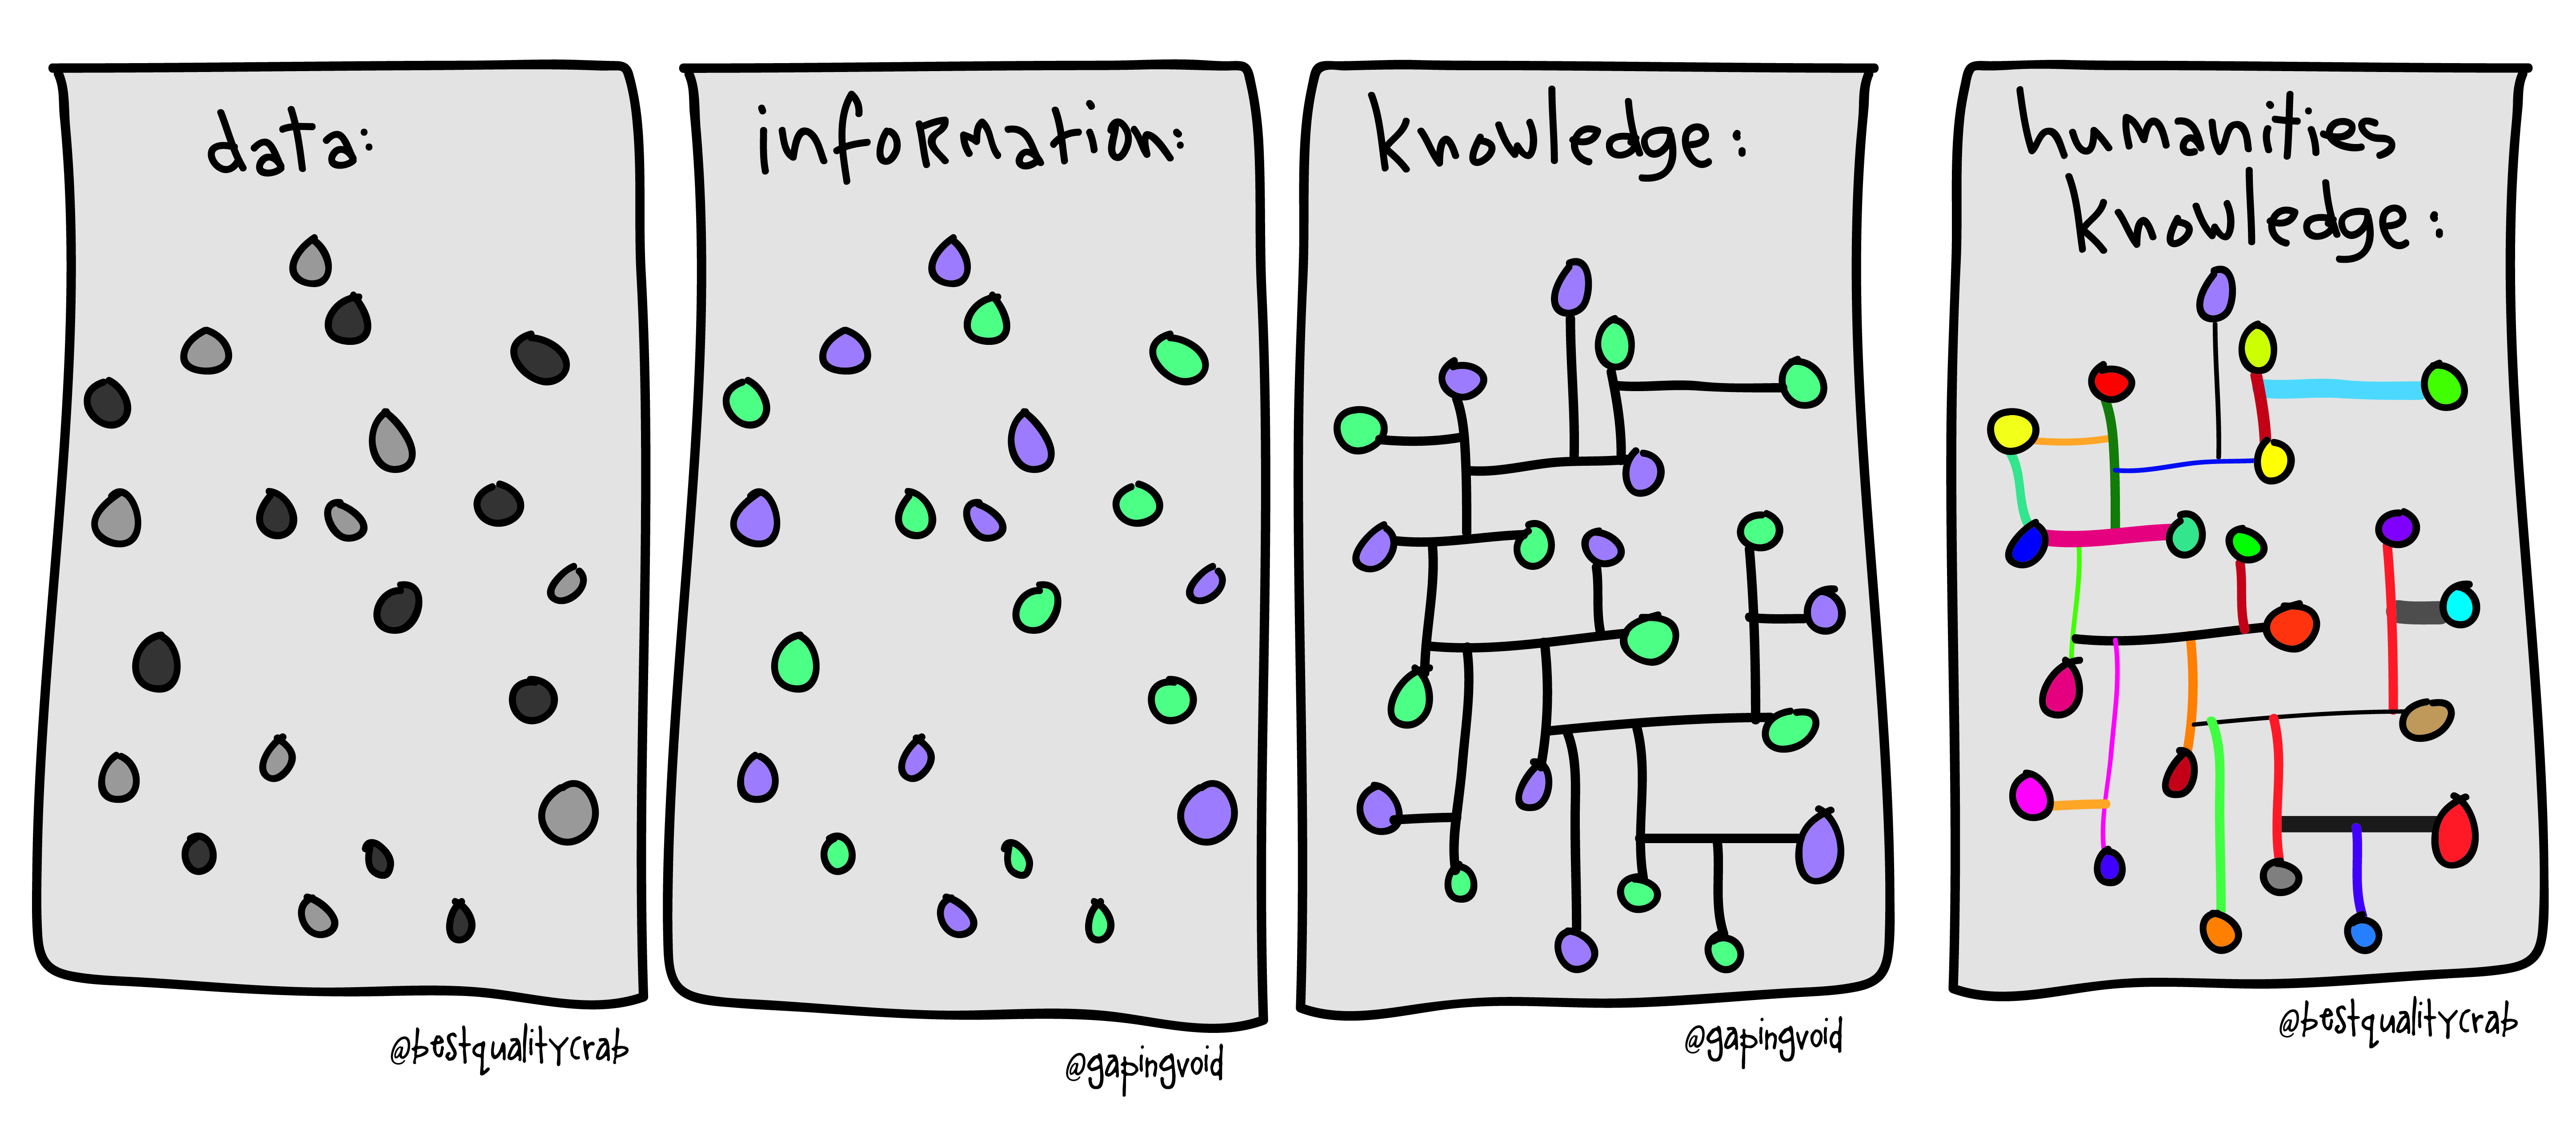 data:
@bestqualitycrab
information:
@gapingvoid
knowledge:
@gapingvoid
humanities
knowledge:
@bestqualitycrab